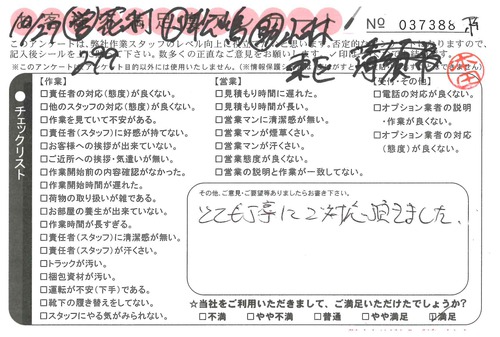 No 037388
このアンケートは、弊社作業スタッフのレベル向上に役立
記入後シールを
※このアンケートはアンケート目的以外には使用いたしません。
チェックリスト
【作業】
□責任者の対応(態度)が良くない。
□他のスタッフの対応(態度)が良くない。
□作業を見ていて不安がある。
□責任者(スタッフ)に好感が持てない。
□お客様への挨拶が出来ていない。
□ご近所への挨拶・気遣いが無い。
□作業開始前の内容確認がなかった。
□作業開始時間が遅れた。
□荷物の取り扱いが雑である。
□お部屋の養生が出来ていない。
□作業時間が長すぎる。
□責任者(スタッフ)に清潔感が無い。
□責任者(スタッフ)が汗くさい。
□トラックが汚い。
□梱包資材が汚い。
□運転が不安(下手)である。
□靴下の履き替えをしてない。
□スタッフにやる気がみられない。
【営業】
□見積もり時間に遅れた。
□見積もり時間が長い。
□営業マンに清潔感が無い。
□営業マンが煙草くさい。
□営業マンが汗くさい。
□営業態度が良くない。
□営業の説明と作業が一致してない。
【受付・その他】
□電話の対応が良くない。
□オプション業者の説明
・作業が良くない。
□オプション業者の対応
(態度)が良くない。
その他、ご意見・ご要望等ありましたらお書き下さい。
とても丁寧にご対応頂きました。
☆当社をご利用いただきまして、ご満足いただけたでしょうか?
□不満 □やや不満 □普通 □やや満足 ☑満足